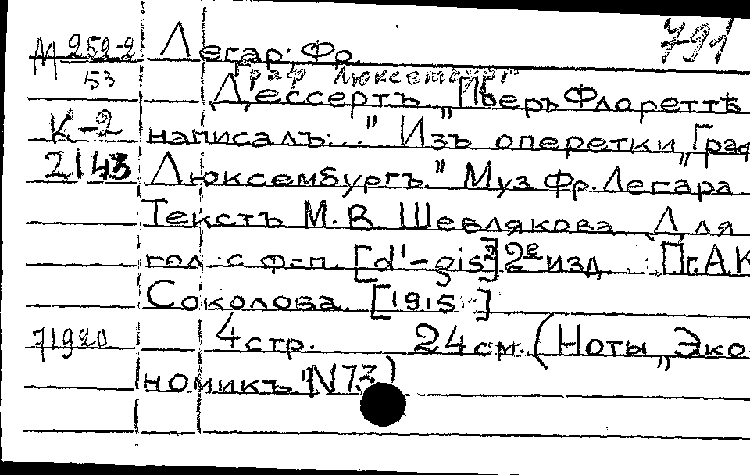 791
М 252-2 Легар. Фр.
53 Граф Люксембург
Дессертъ „Пьеръ Флареттѣ
К-2 написалъ:..." Изъ оперетки „Граф
2143 Люксембургъ." Муз Фр. Легара
Текстъ М. В. Шевлякова Для
гол с ф-п. [d'-gis²] 2е изд. Пг. А К
Соколова. [1915]
71920 4 стр. 24 см. (Ноты „Эко
номикъ" N 73)